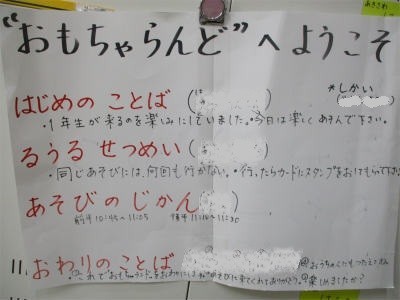 "おもちゃらんど"へようこそ
＊しかい
はじめの ことば
・1年生が来るのを楽しみにしていました。・今日は楽しくあそんで下さい。
るうる せつめい
・同じあそびには、何回も行かない。・行ったらカードにスタンプをおしてもらって下さい
あそびのじかん
前半 10:45〜11:05 後半 11:10〜11:30
おわりのことば
・これで"おもちゃランド"をおわりにします。あそびに来てくれてありがとう。楽しめましたか?